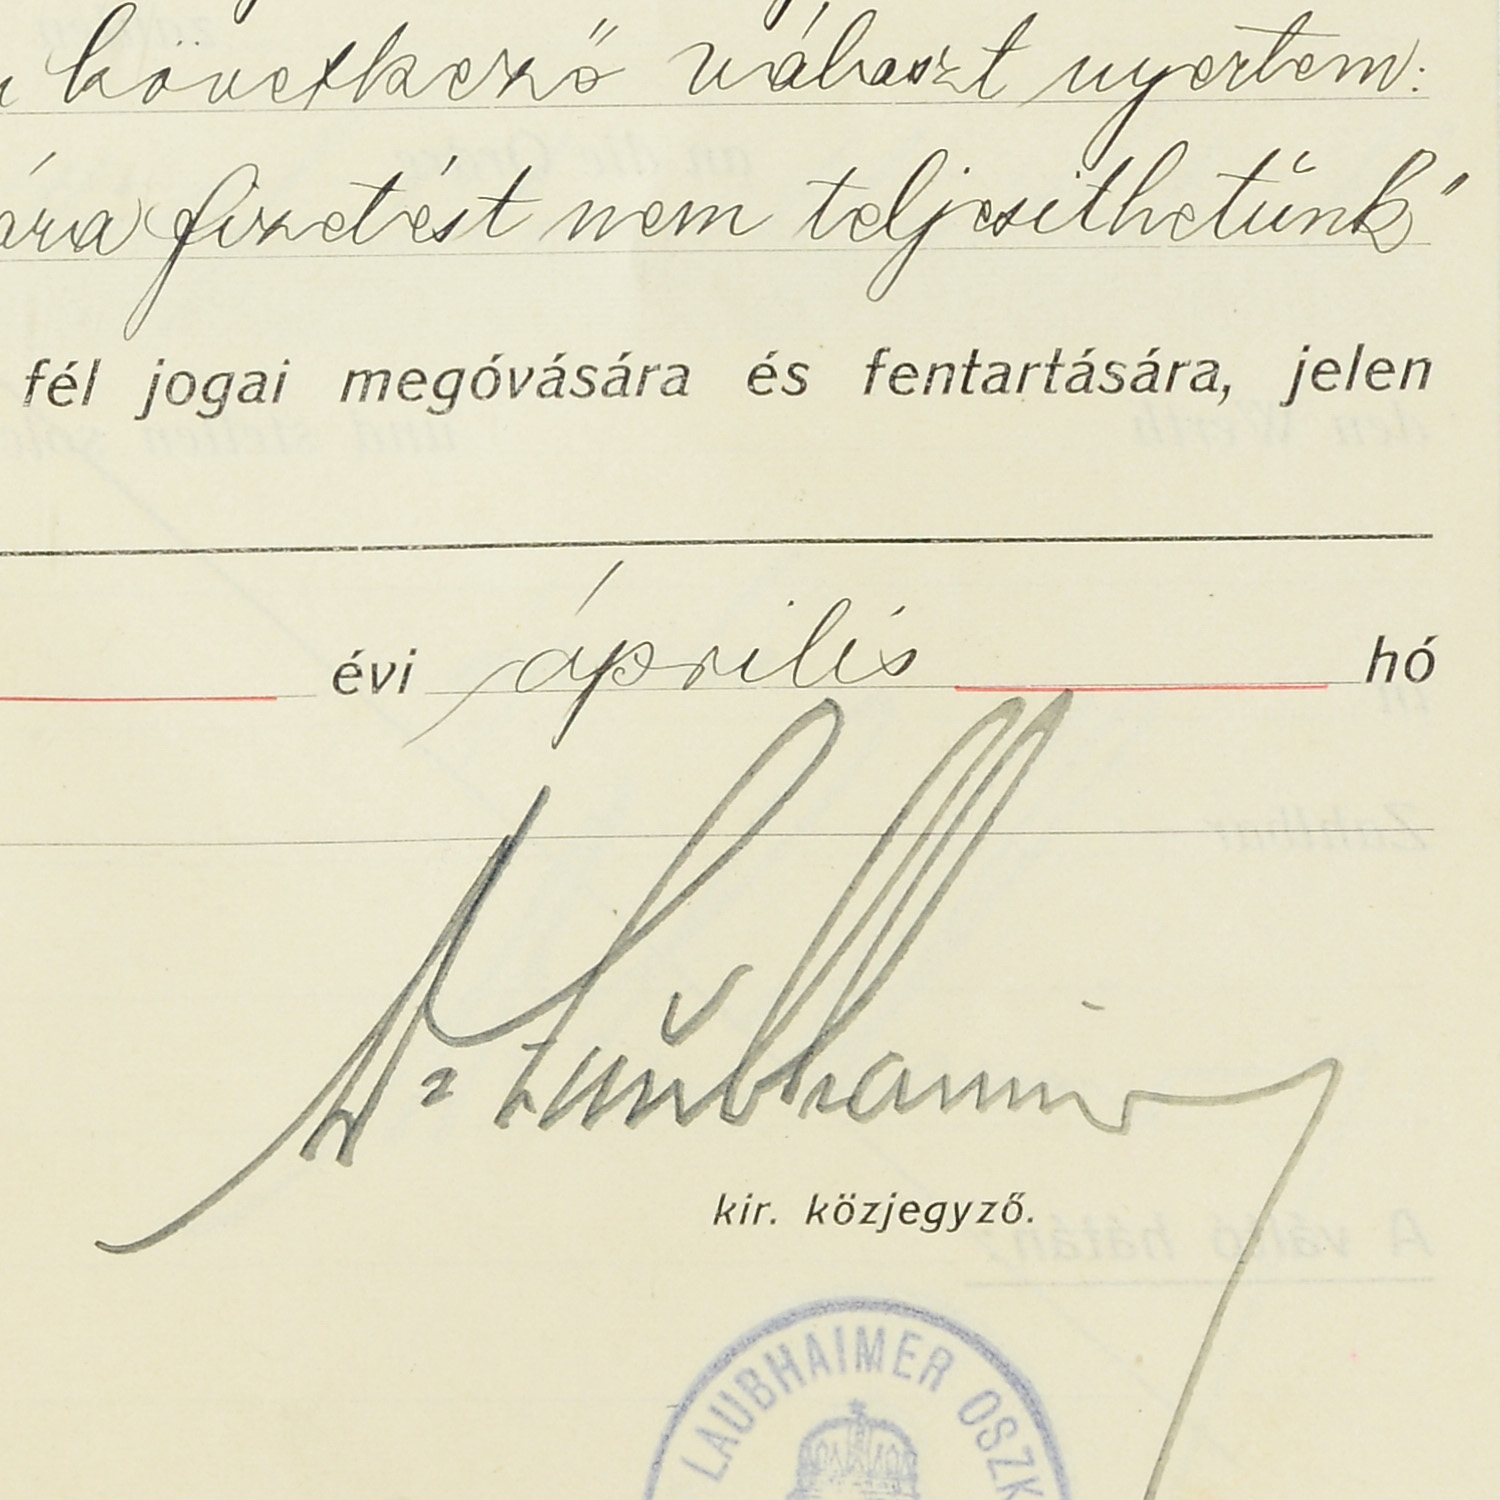 következő választ nyertem:
fizetést nem teljesithetünk"
fél jogai megóvására és fentartására, jelen
évi április hó
Dr Laubhaimer
kir. közjegyző.
LAUBHAIMER OSZK